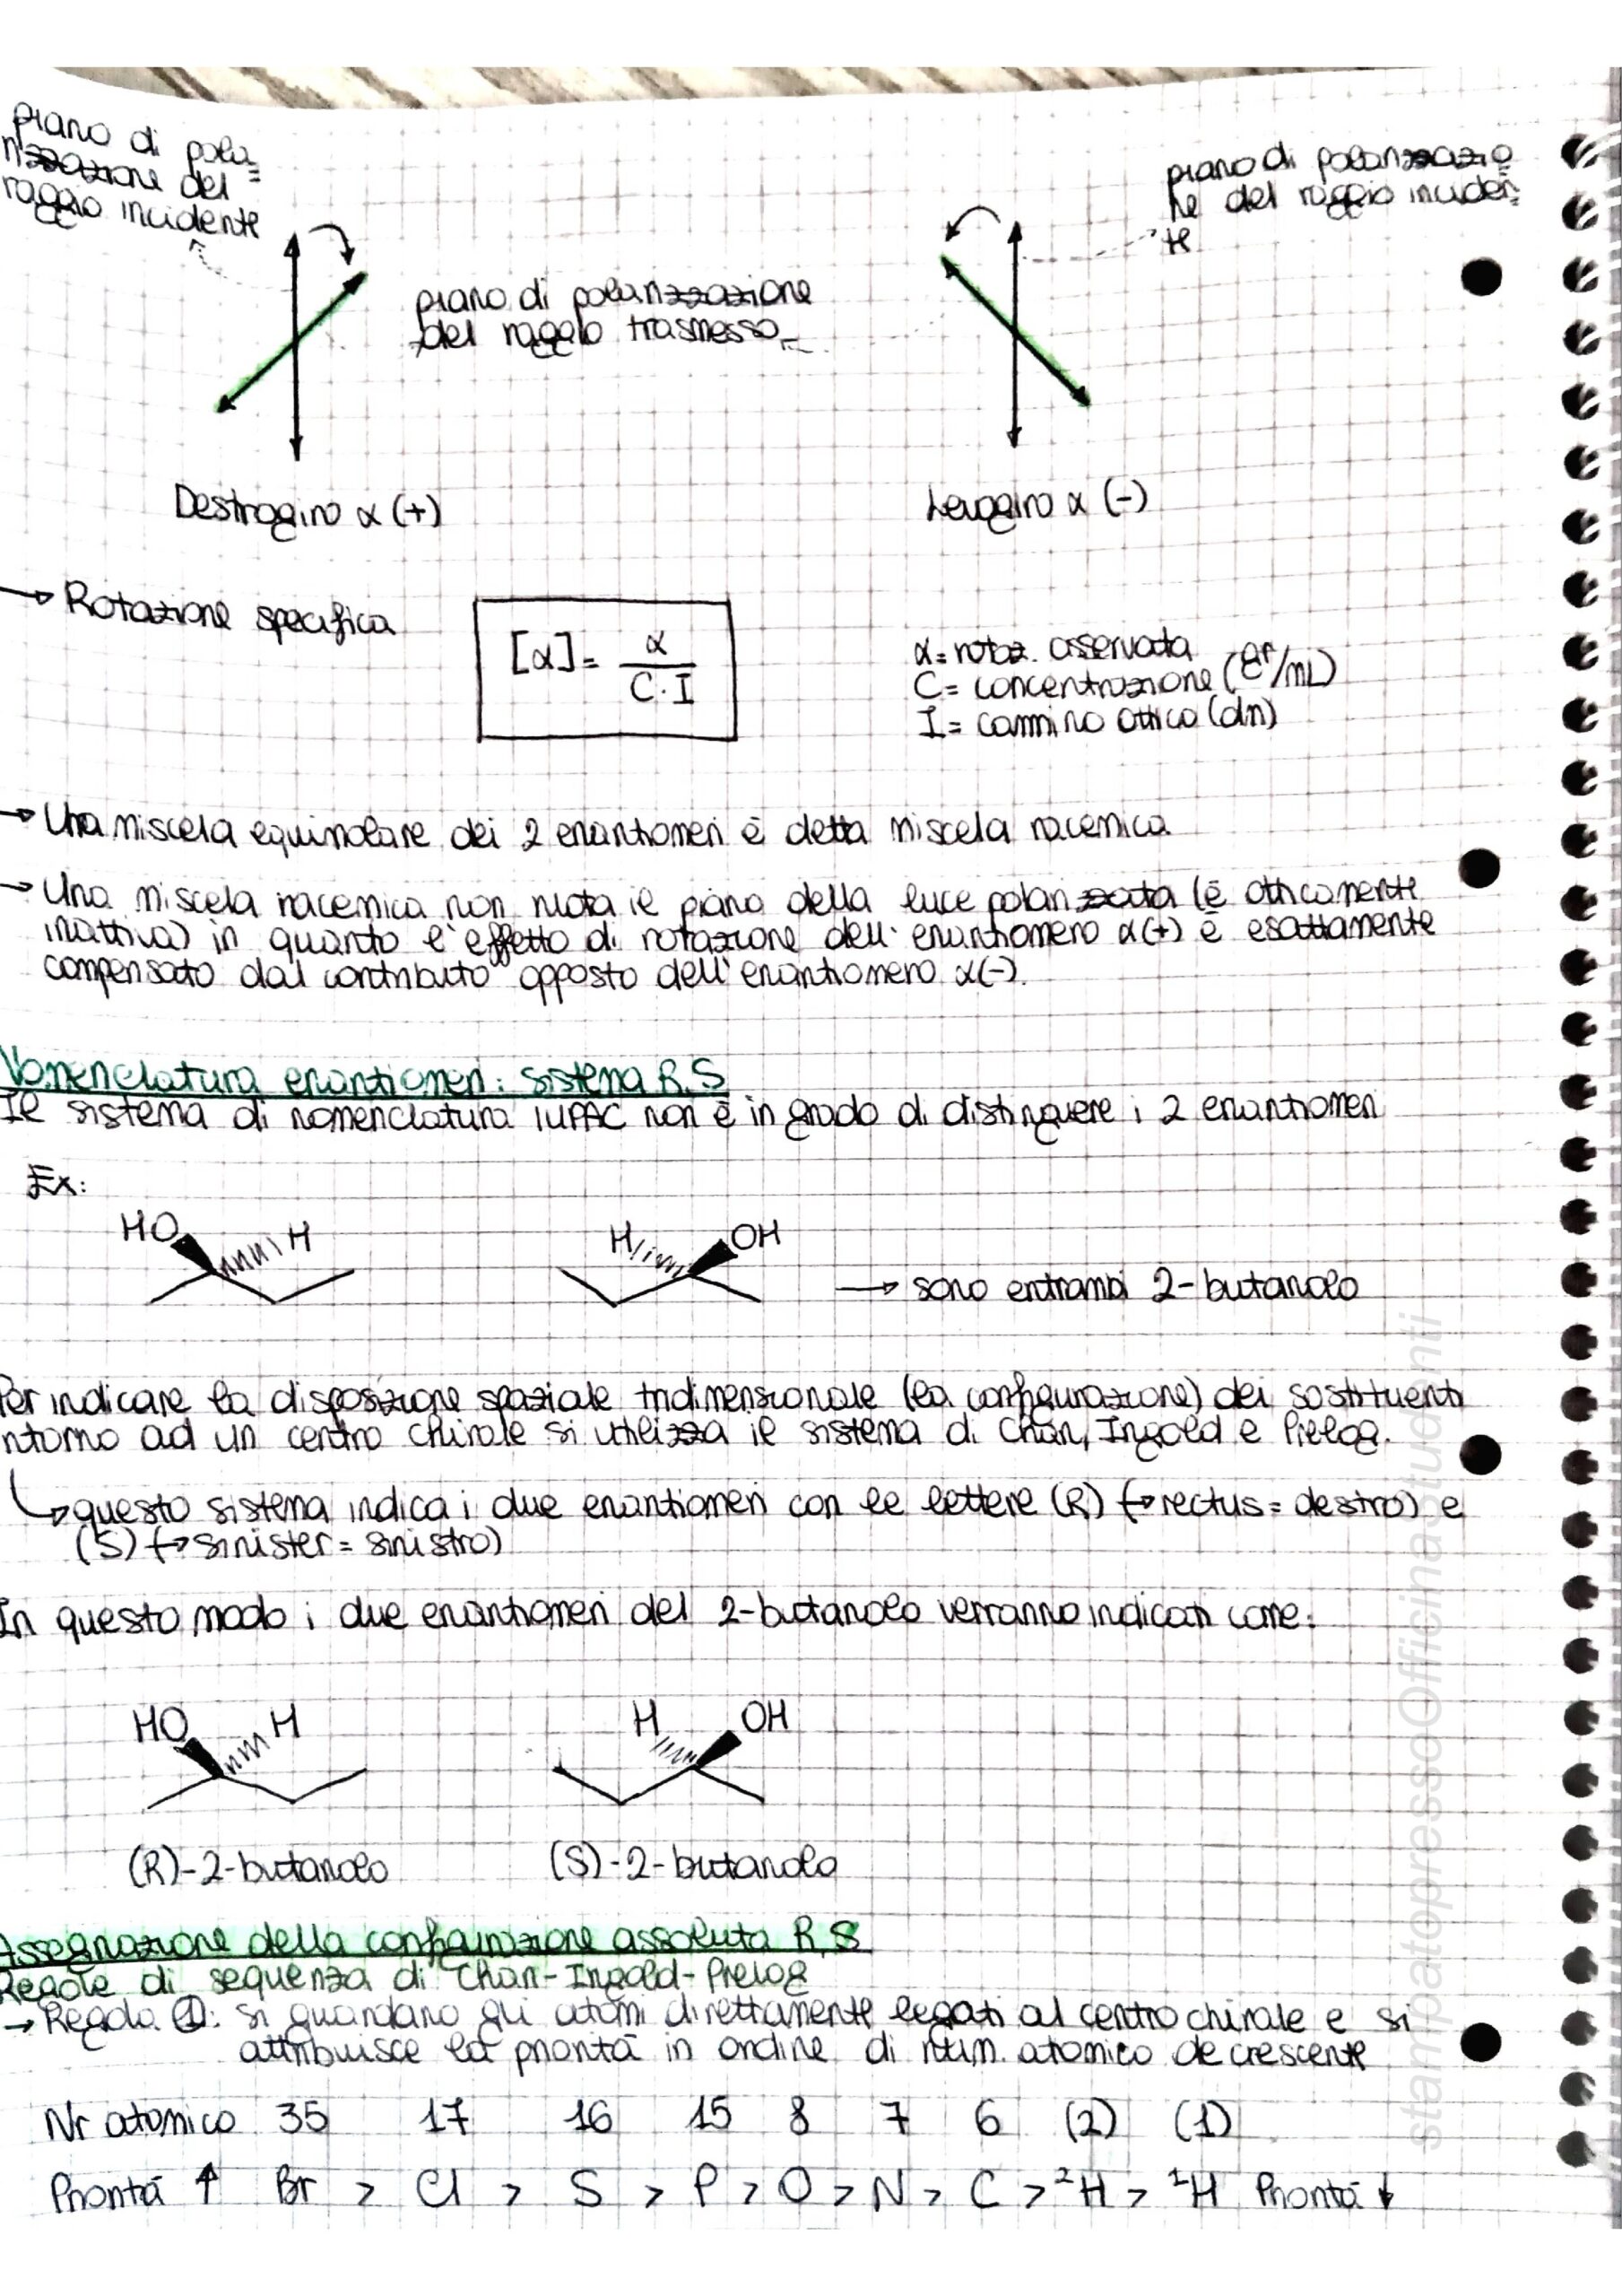 piano di pola=
rizzazione del
raggio incidente
piano di polarizzazio
ne del raggio inciden=
te
piano di polarizzazione
del raggio trasmesso
Destrogiro α (+)
Levogiro α (-)
→ Rotazione specifica
[α] = α / C · I
α = rotaz. osservata
C = concentrazione (gr/mL)
I = cammino ottico (dm)
→ Una miscela equimolare dei 2 enantiomeri è detta miscela racemica
→ Una miscela racemica non ruota il piano della luce polarizzata (è otticamente
inattiva) in quanto l'effetto di rotazione dell'enantiomero α(+) è esattamente
compensato dal contributo opposto dell'enantiomero α(-).
Nomenclatura enantiomeri: sistema R,S
Il sistema di nomenclatura IUPAC non è in grado di distinguere i 2 enantiomeri
Ex:
HO H H OH → sono entrambi 2-butanolo
Per indicare la disposizione spaziale tridimensionale (la configurazione) dei sostituenti
intorno ad un centro chirale si utilizza il sistema di Chan, Ingold e Prelog.
↳ questo sistema indica i due enantiomeri con le lettere (R) (→ rectus = destro) e
(S) (→ sinister = sinistro)
In questo modo i due enantiomeri del 2-butanolo verranno indicati come:
HO H H OH
(R)-2-butanolo (S)-2-butanolo
Assegnazione della configurazione assoluta R,S
Regole di sequenza di Chan-Ingold-Prelog
→ Regola 1: si guardano gli atomi direttamente legati al centro chirale e si
attribuisce la priorità in ordine di num. atomico decrescente
Nr atomico 35 17 16 15 8 7 6 (2) (1)
Priorità ↑ Br > Cl > S > P > O > N > C > ²H > ¹H Priorità ↓
stampatopressoOfficinaStudenti